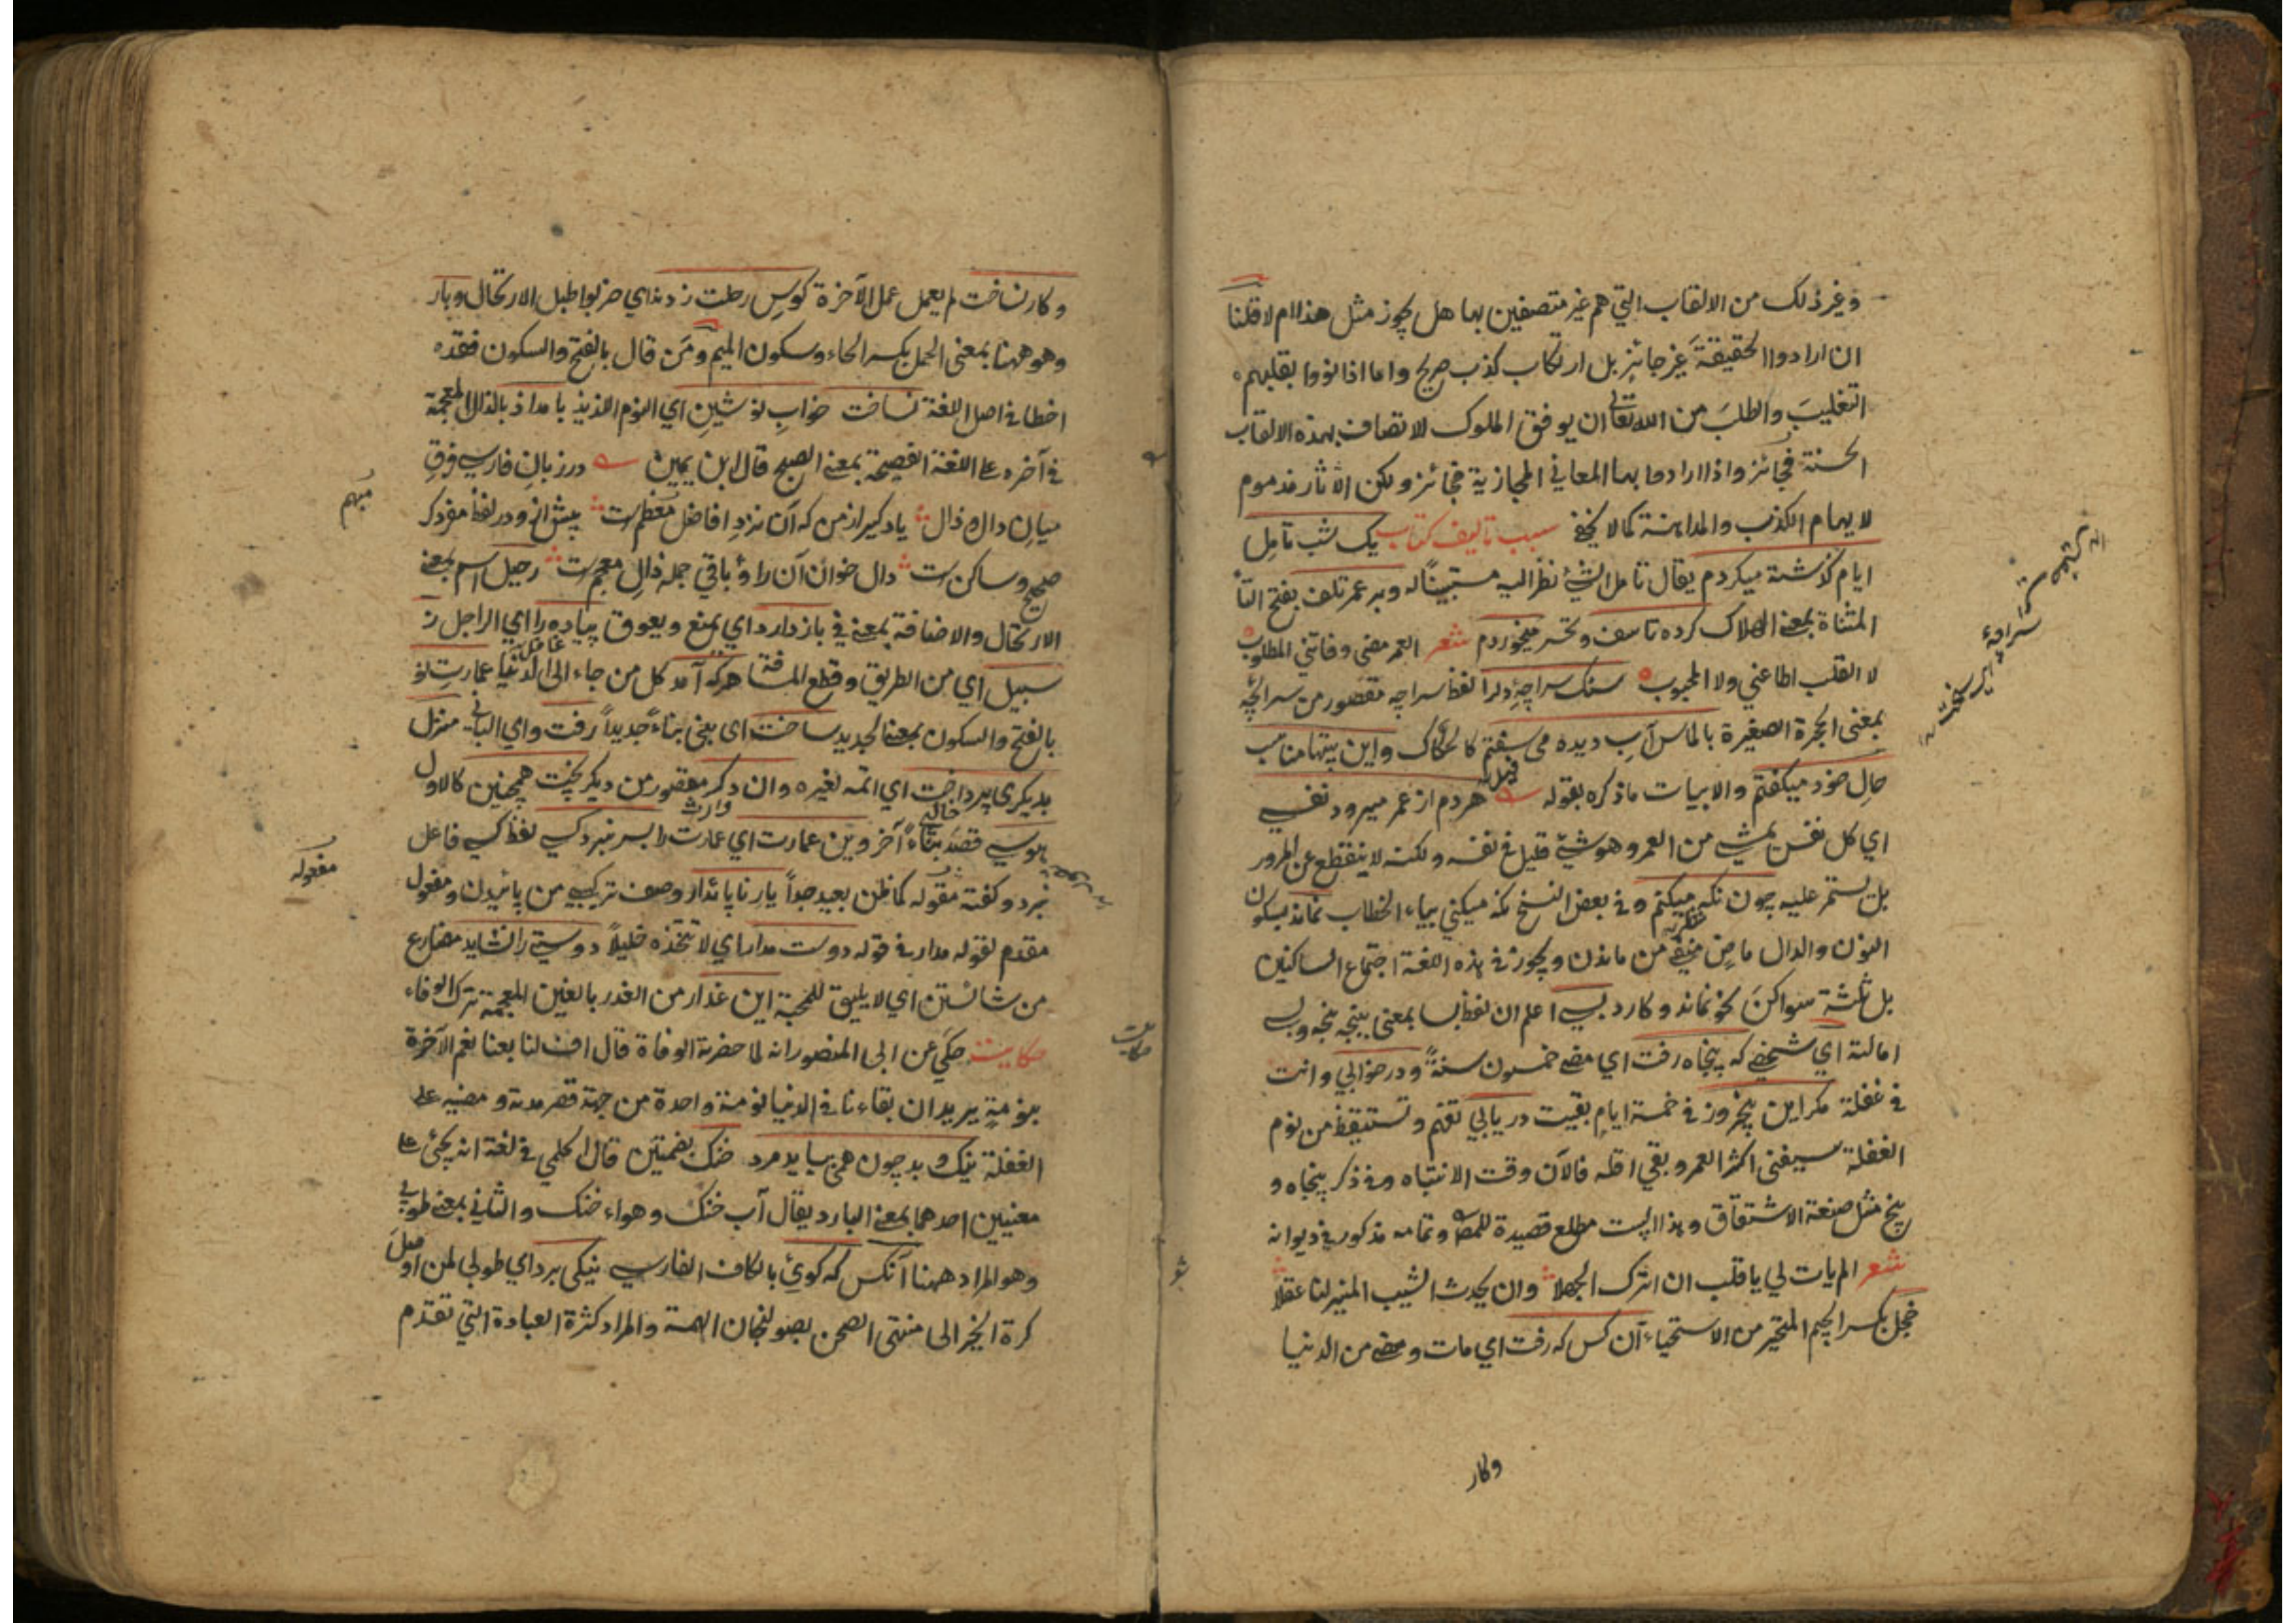 وغير ذلك من الالقاب التي هم غير متصفين بها هل يجوز مثل هذا ام لا قلنا
ان ارادوا الحقيقة غير جائز بل ارتكاب كذب صريح واما اذا نووا بقلبهم
التغليب والطلب من الله تعالى ان يوفق الملوك للاتصاف بهذه الالقاب
الحسنة فجائز واذا ارادوا بها المعاني المجازية فجائز ولكن الاثار مذموم
لايهام الكذب والمداهنة كما لا يخفى سبب تاليف كتاب يك شب تامل
ايام كذشته ميكردم يقال تامل الشئ نظر اليه مستبيناً له وبر عمر تلف بفتح التا
المثناة بمعنى الهلاك كرده تاسف وتحسر ميخوردم شعر العمر مضى وفاتني المطلوب
لا القلب اطاعني ولا المحبوب سنك سراچۀ دلرا لفظ سراچه مقصور من سرايچه
بمعنى الحجرة الصغيرة بالماس آب ديده مى سفتم كالحكاك واين بيتها مناسب
حال خود ميكفتم والابيات ماذكره بقوله هر دم از عمر ميرود نفسى
اي كل نفس يمشي من العمر وهو شئ قليل في نفسه ولكنه لا ينقطع عن المرور
بل يستمر عليه چون نكه ميكنم وفي بعض النسخ نكه ميكني بياء الخطاب نماند بسكون
النون والدال ماض منفي من ماندن ويجوز في هذه اللغة اجتماع الساكنين
بل ثلثة سواكن نحو نماند وكارد بسي اعلم ان لفظ بسا بمعنى
امالته اي شخصى كه پنجاه رفت اي مضى خمسون سنةً ودر خوابي وانت
في غفلة مكر اين پنجروز في خمسة ايام بقيت دريابي تفهم وتستيقظ من نوم
الغفلة سيفنى اكثر العمر وبقي اقله فالآن وقت الانتباه وفي ذكر پنجاه و
پنج مثل صنعة الاشتقاق وهذا البيت مطلع قصيدة للمص وتمامه مذكور في ديوانه
شعر الم يات لي يا قلب ان اترك الجهلا وان يحدث الشيب المنير لنا عقلا
خجل بكسر الجيم المتحير من الاستحياء آن كس كه رفت اي مات ومضى من الدنيا
وكار
وكار نساخت لم يعمل عمل الآخرة كوس رحلت زدند اي ضربوا طبل الارتحال وبار
وهو ههنا بمعنى الحمل بكسر الحاء وسكون الميم ومن قال بالفتح والسكون فقد
اخطا في اصل اللغة نساخت خواب نوشين اي النوم اللذيذ بامداذ بالذال المعجمة
في آخره على اللغة الفصيحة بمعنى الصبح قال ابن يمين در زبان فارسي فرق
ميان دال وذال ياد كير از من كه آن نزد افاضل معظمست پيش ازو در لفظ مفرد كر
صحيح وساكنست دال خوان آن را وباقي جمله ذال معجمست رحيل اسم بمعنى
الارتحال والاضافة بمعنى في باز دارد اي يمنع ويعوق پياده را اي الراجل ز
سبيل اي من الطريق وقطع المسافة هر كه آمد كل من جاء الى الدنيا عمارت نو
بالفتح والسكون بمعنى الجديد ساخت اي بنى بناءً جديداً رفت واي الباني منزل
بديكرى پرداخت اي اتمه لغيره وان دكر مقصور من ديكر پخت همچنين كالاول
هوسي قصد بناءً آخر وين عمارت اي عمارت را بسر نبرد كسي لفظ كسي فاعل
نبرد وكفته مقوله كما ظن بعيد جداً يار ناپائدار وصف تركيبي من پائيدن ومفعول
مقدم لقوله مدار في قوله دوست مدار اي لا تتخذه خليلاً دوستي را نشايد مضارع
من شائستن اي لا يليق للمحبة اين غدار من الغدر بالغين المعجمة ترك الوفاء
حكايت حكي عن ابي المنصور انه لما حضرته الوفاة قال اف لنا بعنا نعم الآخرة
بنومة يريد ان بقاءنا في الدنيا نومة واحدة من جهة قصر مدته ومضيه على
الغفلة نيك وبد چون همى ببايد مرد خنك بضمتين قال الحلمي في لغة انه يجئ على
معنيين احدهما بمعنى البارد يقال آب خنك وهواء خنك والثاني بمعنى طوبى
وهو المراد ههنا آنكس كه كوى بالكاف الفارسي نيكى برد اي طوبى لمن اوصل
كرة الخير الى منتهى الصحن بصولجان الهمة والمراد كثرة العبادة التي تقدم
مبهم
مفعوله
حكايت